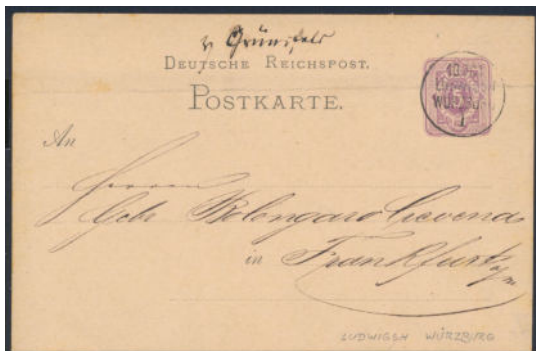 v Grünsfeld
DEUTSCHE REICHSPOST.
POSTKARTE.
An
Herrn
Gebr Bolongaro Crevenna
in Frankfurt a/m
LUDWIGSH WÜRZBURG